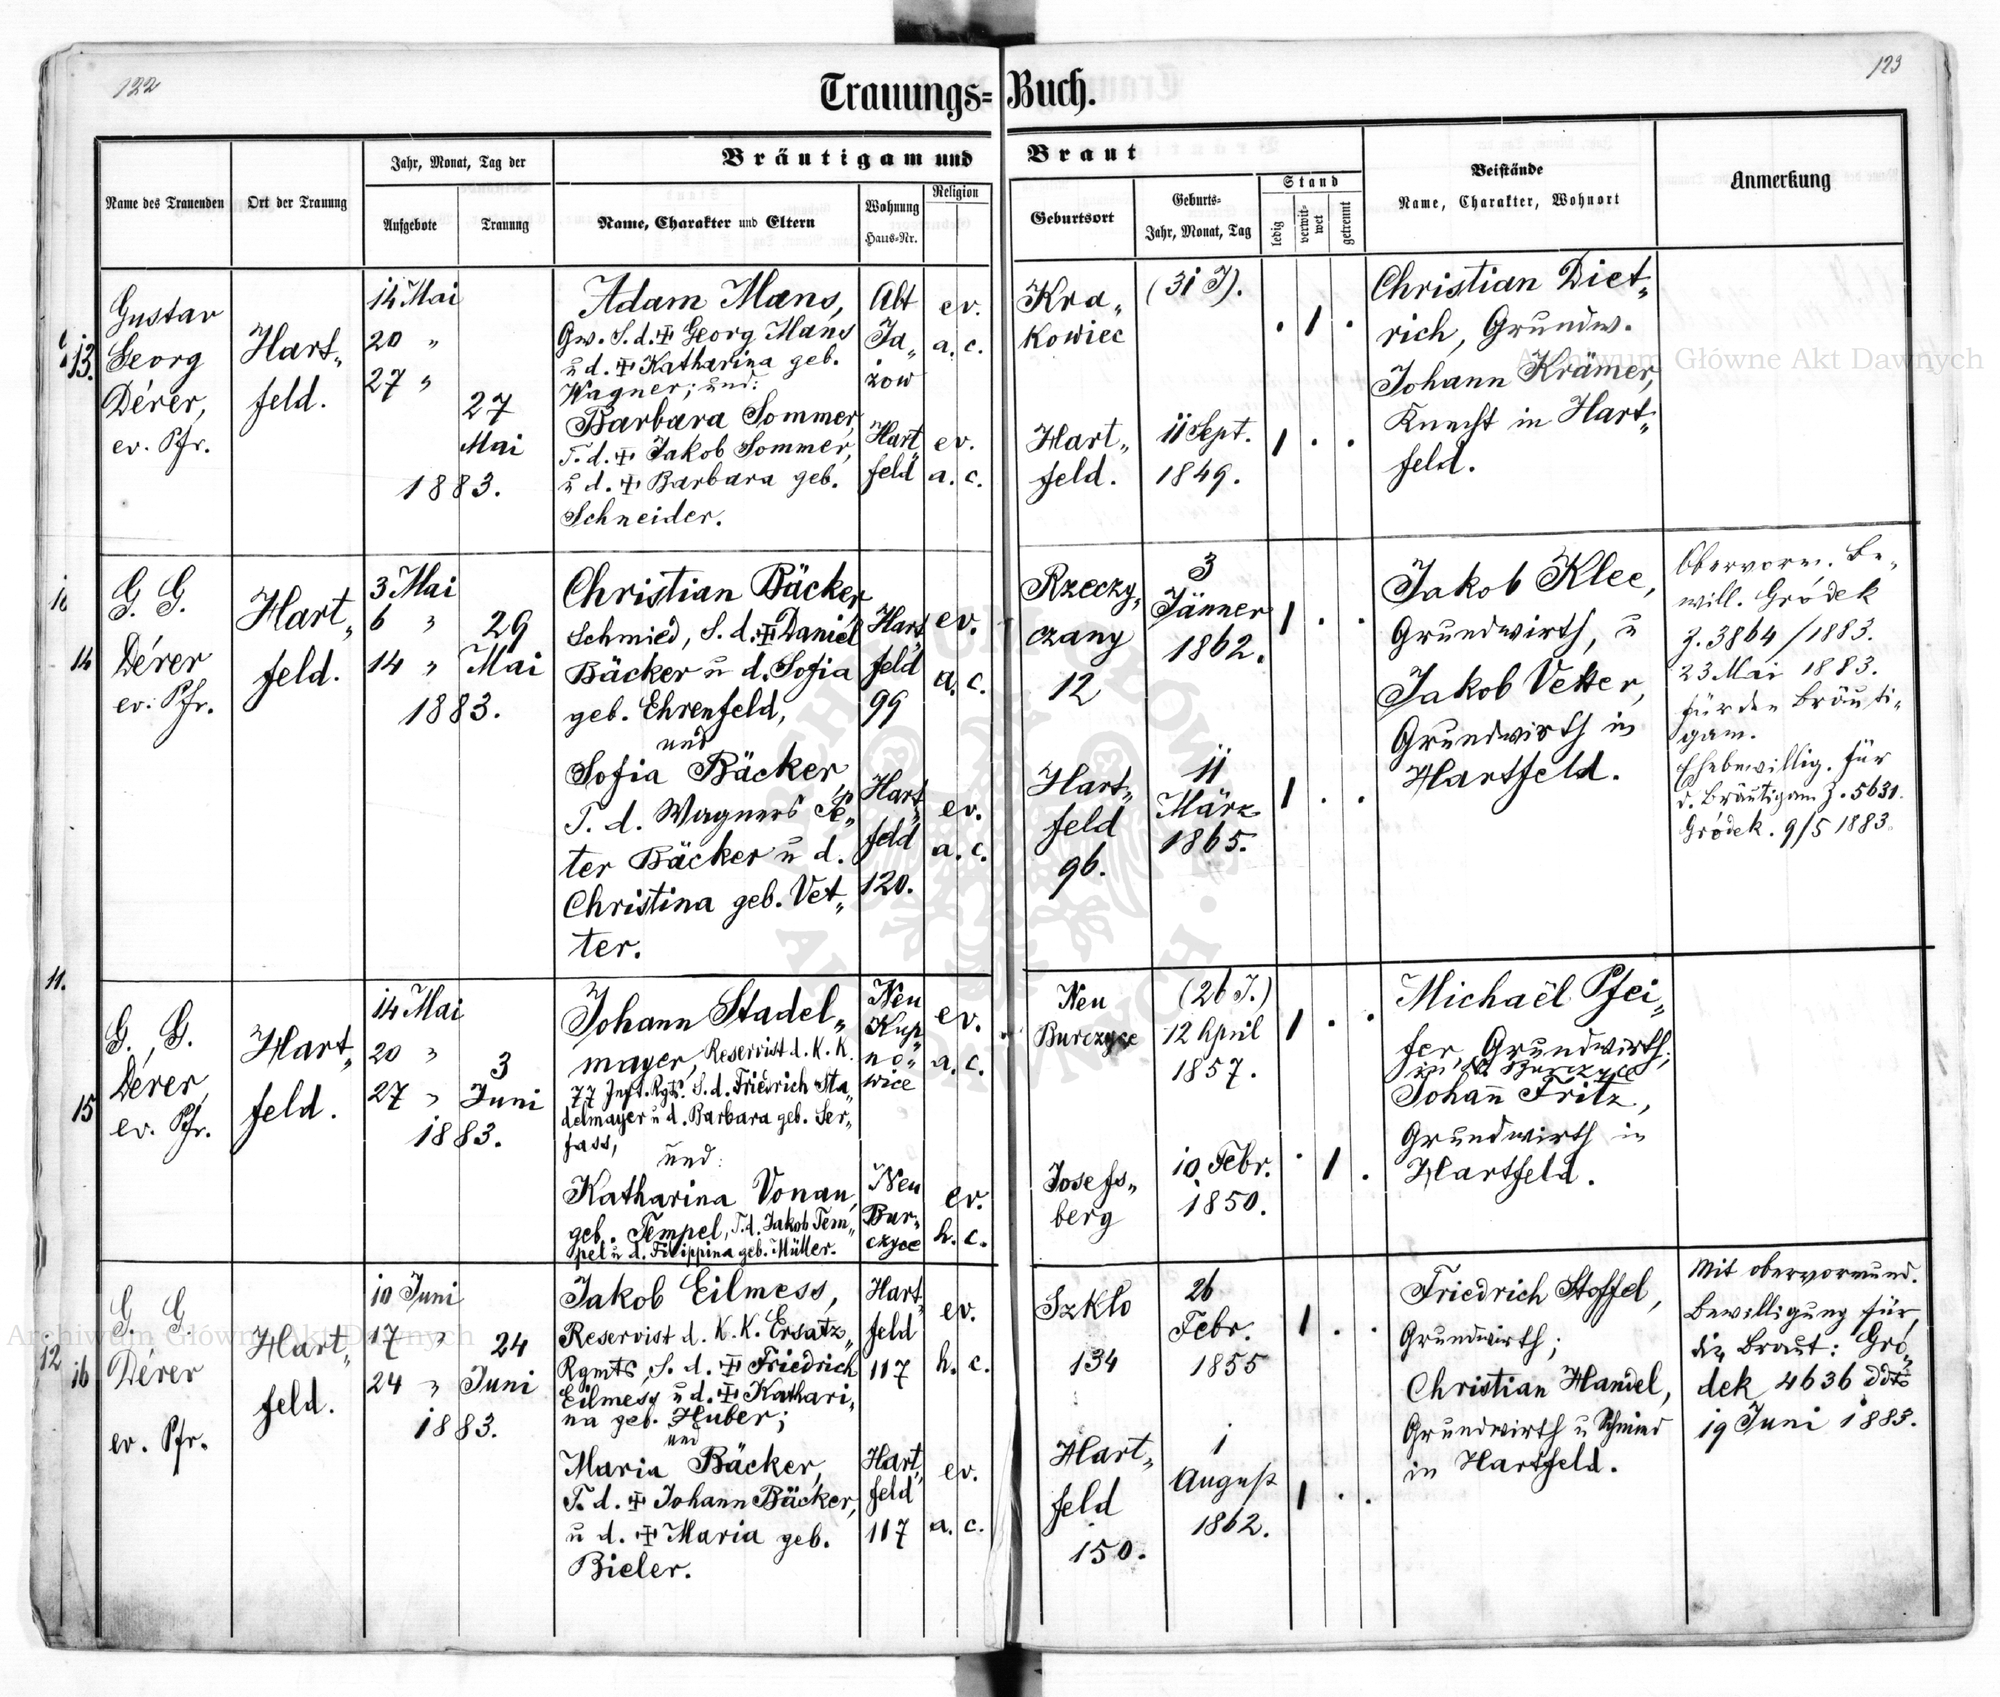 122
123
Trauungs=Buch.
Name des Trauenden
Ort der Trauung
Jahr, Monat, Tag der
Aufgebote
Trauung
Bräutigam und Braut
Name, Charakter und Eltern
Wohnung
Haus=Nr.
Religion
Geburtsort
Geburts=
Jahr, Monat, Tag
Stand
ledig
verwit=
wet
getrennt
Beistände
Name, Charakter, Wohnort
Anmerkung
13.
Gustav
Georg
Dérer,
ev. Pfr.
Hart„
feld.
14 Mai
20 „
27 „
27
Mai
1883.
Adam Mans,
Gw. S. d. ✝ Georg Mans
u d. ✝ Katharina geb.
Wagner; und:
Barbara Sommer,
T. d. ✝ Jakob Sommer,
u d. ✝ Barbara geb.
Schneider.
Alt
Ja„
żow
Hart„
feld
ev.
a. c.
ev.
a. c.
Kra„
kowiec
Hart„
feld.
(31 J).
11 Sept.
1849.
. 1 .
1 . .
Christian Diet„
rich, Grundw.
Johann Krämer,
Knecht in Hart„
feld.
10
14
G. G.
Dérer
ev. Pfr.
Hart„
feld.
3 Mai
6 „
14 „
29
Mai
1883.
Christian Bäcker,
Schmied, S. d. ✝ Daniel
Bäcker u d. Sofia
geb. Ehrenfeld,
und
Sofia Bäcker
T. d. Wagners Pe„
ter Bäcker u d.
Christina geb. Vet„
ter.
Hart„
feld
99
Hart„
feld
120.
ev.
a. c.
ev.
a. c.
Rzeczy„
czany
12
Hart„
feld
96.
3
Jänner
1862.
11
März
1865.
1 . .
1 . .
Jakob Klee,
Grundwirth, u
Jakob Vetter,
Grundwirth in
Hartfeld.
Obervorm. Be„
will. Gródek
Z. 3864/1883.
23 Mai 1883.
für den Bräuti„
gam.
Ehebewillig. für
d. Bräutigam Z. 5631.
Gródek. 9/5 1883.
11.
15
G. G.
Dérer,
ev. Pfr.
Hart„
feld.
14 Mai
20 „
27 „
3
Juni
1883.
Johann Stadel„
mayer, Reservist d. K. K.
77 Inft. Rgts. S. d. Friedrich Sta„
delmayer u d. Barbara geb. Ser„
fass,
und:
Katharina Vonau,
geb. Tempel, T. d. Jakob Tem„
pel u d. Filippina geb. Müller.
Neu
Kup„
no„
wice
Neu
Bur„
czyce
ev.
a. c.
ev.
h. c.
Neu
Burczyce
Josefs„
berg
(26 J.)
12 April
1857.
10 Febr.
1850.
1 . .
. 1 .
Michaël Pfei„
fer, Grundwirth;
Johann Fritz,
Grundwirth in
Hartfeld.
12
16
G. G.
Dérer
ev. Pfr.
Hart„
feld.
10 Juni
17 „
24 „
24
Juni
1883.
Jakob Eilmess,
Reservist d. K. K. Ersatz„
Rgmts, S. d. ✝ Friedrich
Eilmess u d. ✝ Kathari„
na geb. Huber;
und
Maria Bäcker,
T. d. ✝ Johann Bäcker,
u d. ✝ Maria geb.
Bieler.
Hart„
feld
117
Hart„
feld
117
ev.
h. c.
ev.
a. c.
Szkło
134
Hart„
feld
150.
26
Febr.
1855
1
August
1862.
1 . .
1 . .
Friedrich Stoffel,
Grundwirth;
Christian Handel,
Grundwirth u Schmied
in Hartfeld.
Mit obervormund.
Bewilligung für
die Braut: Gró„
dek 4636 ddto
19 Juni 1883.
Archiwum Główne Akt Dawnych
Archiwum Główne Akt Dawnych
ARCHIWUM GŁÓWNE AKT DAWNYCH